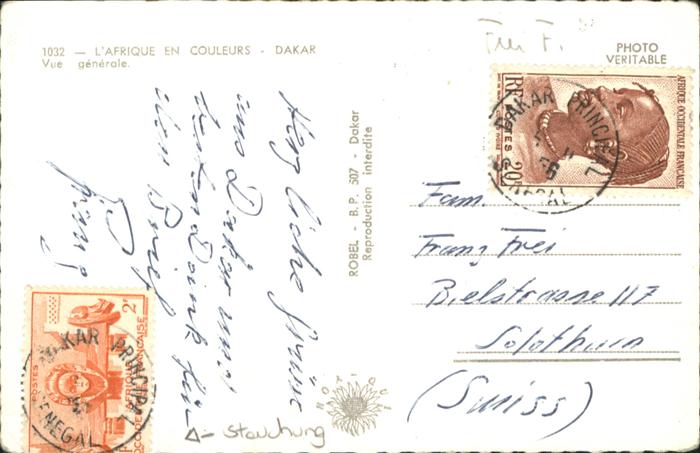 1032 — L'AFRIQUE EN COULEURS - DAKAR
Vue générale.
Frei F.
PHOTO
VERITABLE
Herzliche Grüsse
aus Dakar und
besten Dank für
den Brief
ROBEL - B.P. 507 - Dakar
Reproduction interdite
AFRIQUE OCCIDENTALE FRANÇAISE
POSTES 20F
DAKAR PRINCIPAL
SENEGAL
Fam.
Franz Frei
Bielstrasse 117
Solothurn
(Suiss)
2F
POSTES
DAKAR PRINCIPAL
SENEGAL
Stauchung